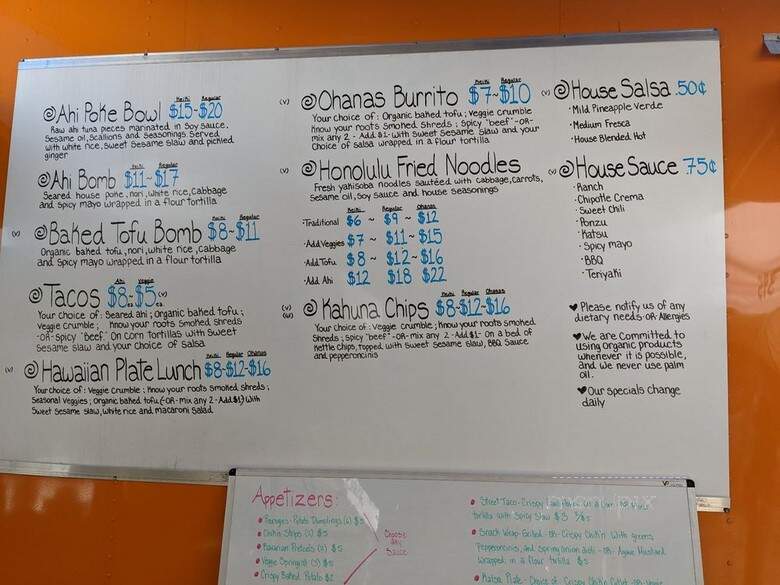 Keiki Regular
Ahi Poke Bowl $15~$20
Raw ahi tuna pieces marinated in soy sauce,
sesame oil, scallions and seasonings served
with white rice, sweet sesame slaw and pickled
ginger
Keiki Regular
Ahi Bomb $11~$17
Seared house poke, nori, white rice, cabbage
and spicy mayo wrapped in a flour tortilla
Keiki Regular
(v) Baked Tofu Bomb $8~$11
Organic baked tofu, nori, white rice, cabbage
and spicy mayo wrapped in a flour tortilla
Ahi Veggie
Tacos $8ea. $5ea. (v)
Your choice of: Seared ahi; organic baked tofu;
veggie crumble; know your roots smoked shreds
-OR- spicy "beef." On corn tortillas with sweet
sesame slaw and your choice of salsa
Keiki Regular Ohana
(v) Hawaiian Plate Lunch $8~$12~$16
Your choice of: Veggie crumble; know your roots smoked shreds;
Seasonal veggies; organic baked tofu (-OR- mix any 2 - Add $1) with
sweet sesame slaw, white rice and macaroni salad
Keiki Regular
(v) Ohanas Burrito $7~$10
Your choice of: Organic baked tofu; veggie crumble
know your roots smoked shreds; spicy "beef" -OR-
mix any 2 - Add $1- with sweet sesame slaw and your
choice of salsa wrapped in a flour tortilla
(v) Honolulu Fried Noodles
Fresh yakisoba noodles sautéed with cabbage, carrots,
sesame oil, soy sauce and house seasonings
Keiki Regular Ohana
·Traditional $6 ~ $9 ~ $12
·Add Veggies $7 ~ $11 ~ $15
·Add Tofu $8 ~ $12 ~ $16
·Add Ahi $12 $18 $22
Keiki Regular Ohana
(v) Kahuna Chips $8~$12~$16
Your choice of: Veggie crumble; know your roots smoked
shreds; spicy "beef" -OR- mix any 2 - Add $1- on a bed of
kettle chips, topped with sweet sesame slaw, BBQ sauce
and pepperoncinis
(v) House Salsa .50¢
·Mild Pineapple Verde
·Medium Fresca
·House Blended Hot
(v) House Sauce .75¢
·Ranch
·Chipotle Crema
·Sweet Chili
·Ponzu
·Katsu
·Spicy mayo
·BBQ
·Teriyaki
Please notify us of any
dietary needs -OR- Allergies
We are committed to
using organic products
whenever it is possible,
and we never use palm
oil.
Our specials change
daily
Appetizers:
Pierogies - Potato Dumplings (6) $5
Chik'n Strips (3) $5
Bavarian Pretzels (4) $5
Veggie Springroll (3) $5
Crispy Baked Potato $2
Choose
any
Sauce
Street Taco - Crispy
tortilla with Spicy Slaw $3
Snack Wrap - Grilled -OR- Crispy Chik'n with greens,
Pepperoncinis, and spring onion aioli -OR- Agave Mustard
wrapped in a flour tortilla $5
Katsu Plate - Choice of: Crispy Chik'n